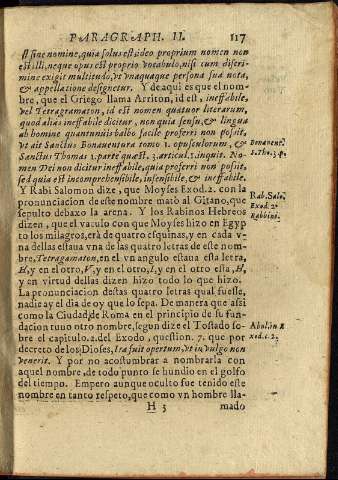 PARAGRAPH. II. 117
est sine nomine, quia solus est, ideo proprium nomen non
est illi, neque opus est proprio vocabulo, nisi cum discri-
mine exigit multitudo, vt vnaquaque persona sua nota,
& appellatione designetur. Y de aqui es que el nom-
bre, que el Griego llama Arriton, id est, ineffabile,
vel Tetragramaton, id est nomen quatuor literarum,
quod aliàs ineffabile dicitur, non quia sensu, & lingua
ab homine quantunuis balbo facile proferri non possit,
vt ait Sanctus Bonauentura tomo 1. opusculorum, &
Sanctus Thomas 1. parte quæst. 3. articul. 1. inquit. No-
men Dei non dicitur ineffabile, quia proferri non possit,
sed quia est incomprehensibile, insensibile, & ineffabile.
Y Rabi Salomon dize, que Moyses Exod. 2. con la
pronunciacion de este nombre matò al Gitano, que
sepulto debaxo la arena. Y los Rabinos Hebreos
dizen, que el vaculo con que Moyses hizo en Egyp
to los milagros, era de quatro esquinas, y en cada v-
na dellas estaua vna de las quatro letras de este nom-
bre, Tetragamaton, en el vn angulo estaua esta letra,
H, y en el otro, V, y en el otro, I, y en el otro esta, H,
y en virtud dellas dizen hizo todo lo que hizo.
La pronunciacion destas quatro letras qual fuesse,
nadie ay el dia de oy que lo sepa. De manera que assi
como la Ciudad de Roma en el principio de su fun-
dacion tuuo otro nombre, segun dize el Tostado so-
bre el capitulo. 2. del Exodo, question. 7. que por
decreto de los Dioses, Ita fuit opertum, vt in vulgo non
venerit. Y por no acostumbrar a nombrarla con
aquel nombre, de todo punto se hundio en el golfo
del tiempo. Empero aunque oculto fue tenido este
nombre en tanto respeto, que como vn hombre lla-
H 3 mado
Bonauent.
s. Tho. 1. p.
Rab. Salo.
Exod. 2.
Rabbini.
Abul. in E
xod. c. 2.